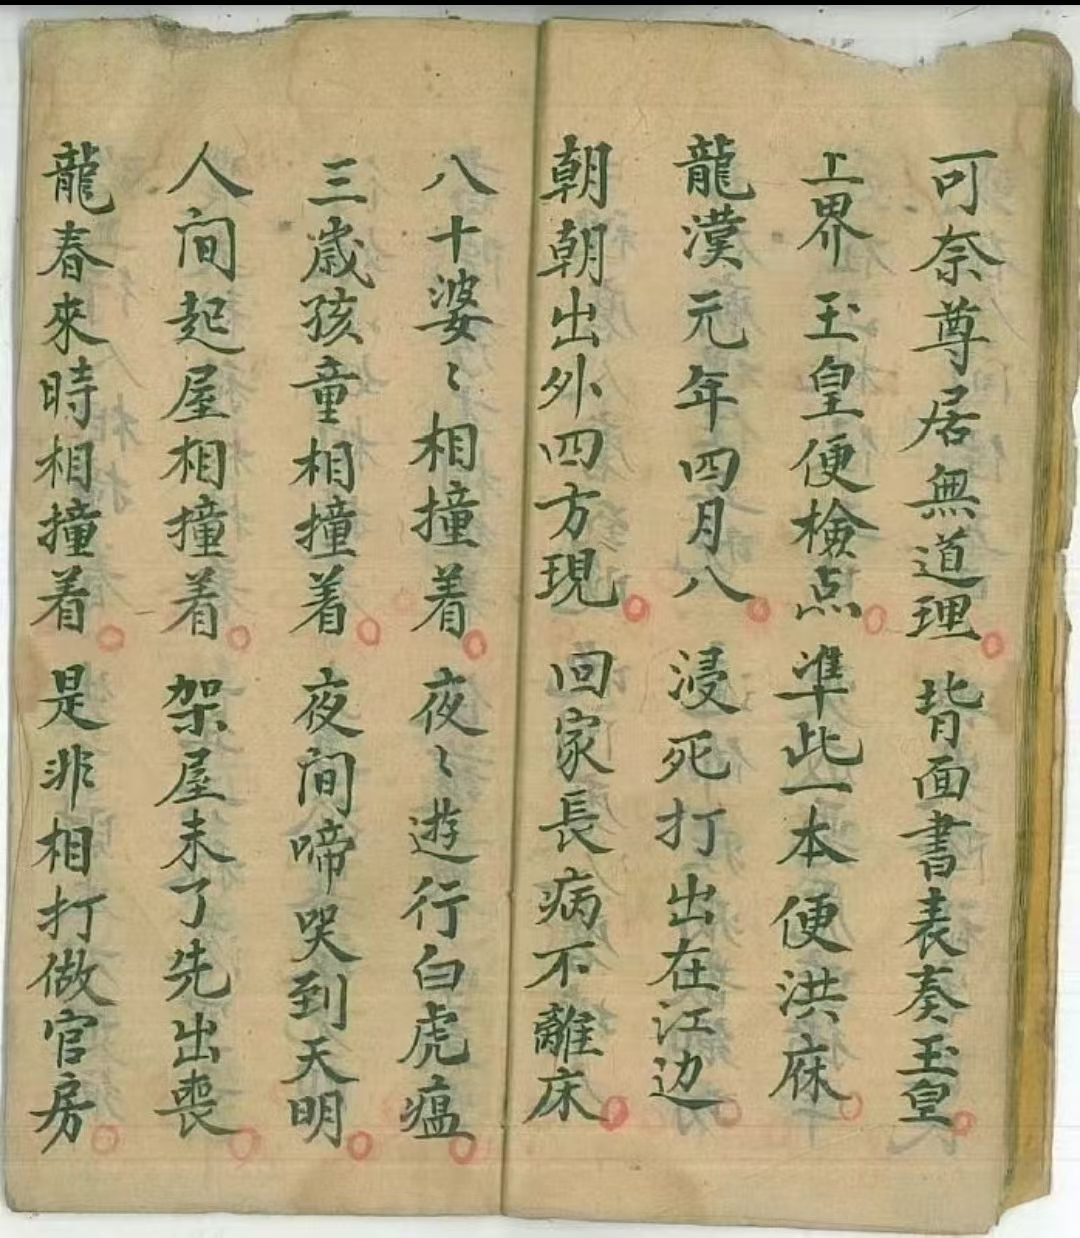 可奈尊居無道理 背面書表奏玉皇
上界玉皇便檢点 準此一本便洪庥
龍漢元年四月八 浸死打出在江边
朝朝出外四方現 回家長病不離床
八十婆〻相撞着 夜〻遊行白虎瘟
三歲孩童相撞着 夜间啼哭到天明
人间起屋相撞着 架屋未了先出喪
龍春來時相撞着 是非相打做官房